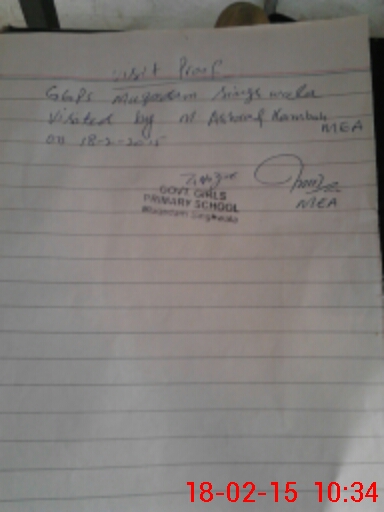 visit Proof
GGPS Muqadam Singh wala
Visited by M Ashraf Kamboh MEA
on 18-2-2015
GOVT. GIRLS
PRIMARY SCHOOL
MEA
18-02-15 10:34